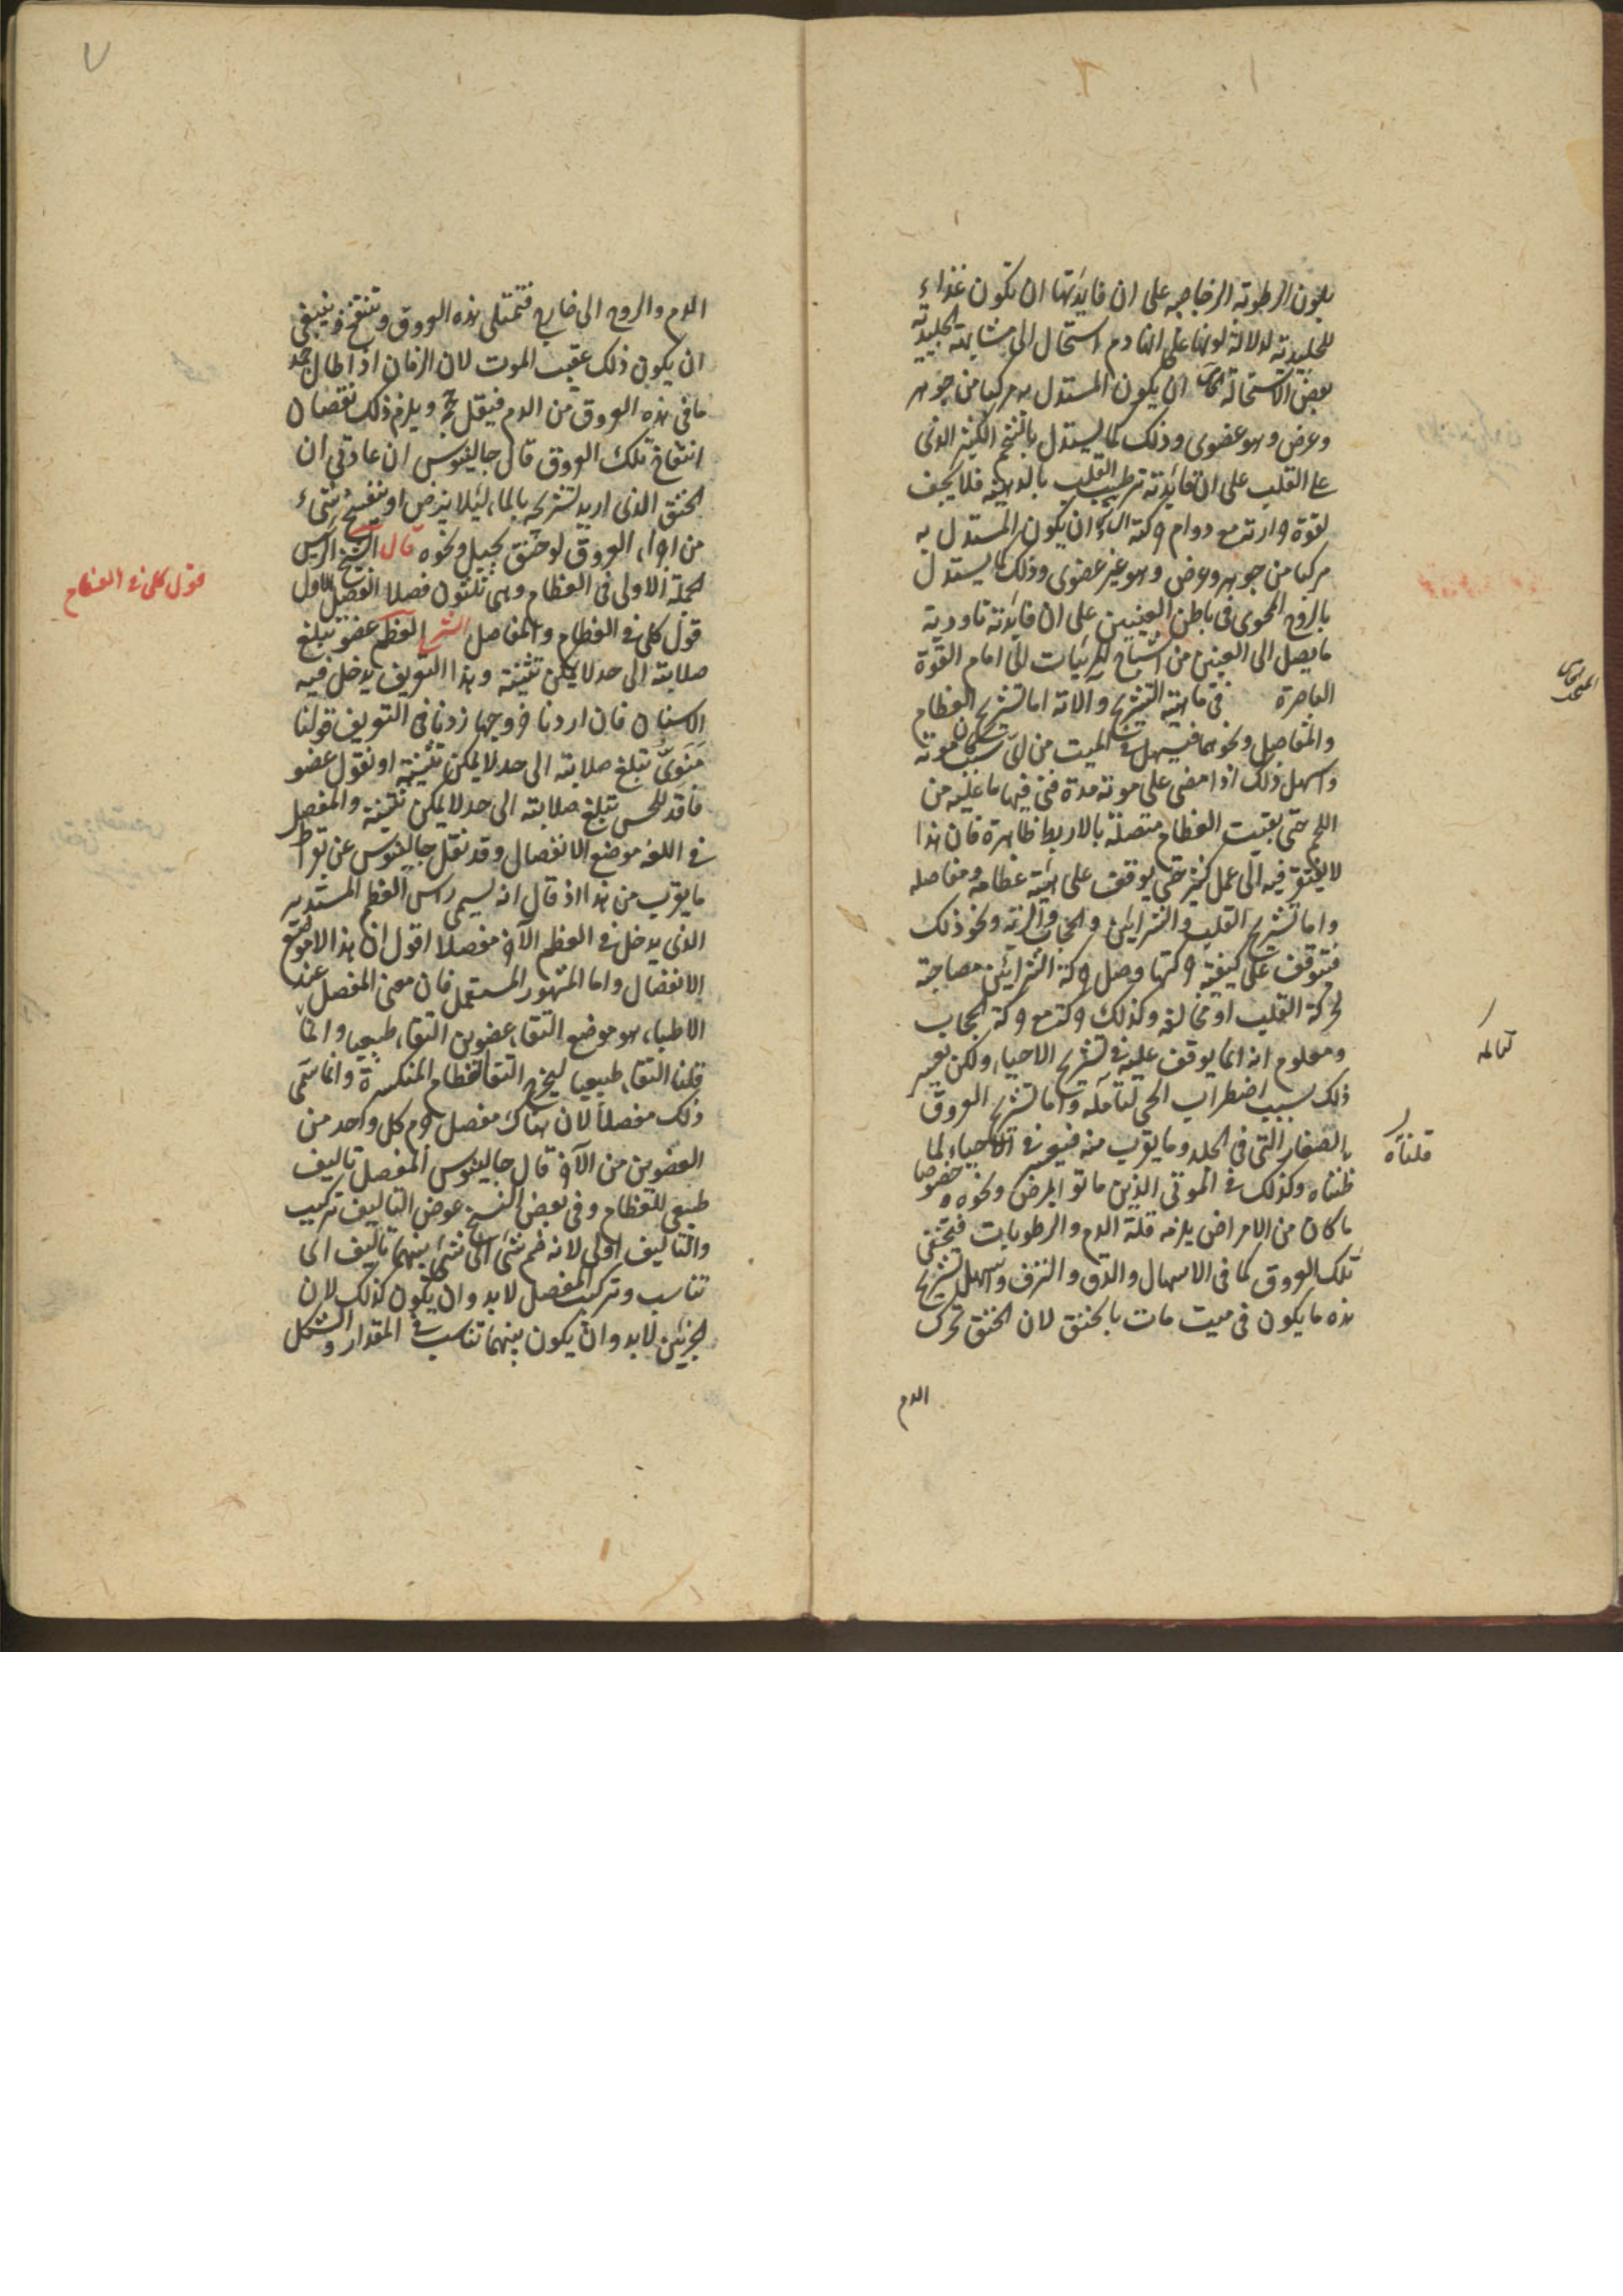 بلون الرطوبة الزجاجيه على ان فايدتها ان تكون غذاء
للجليدية لدلالة لونها على انها دم استحال الى مشابهة الجليدية
بعض الاستحالة ان يكون المستدل به مركبا من جوهر
وعرض وهو عضوى وذلك كما يستدل بالشحم الكثير الذى
على القلب على ان فائدته ترطيب القلب بالدهنيه فلا يجف
لقوة حرارته مع دوام حركته ان يكون المستدل به
مركبا من جوهر وعرض وهو غير عضوى وذلك كما يستدل
بالروح المحوى فى باطن العينين على ان فائدته تادية
ما يصل الى العينين من اشباح المرئيات الى امام القوة
الباصرة فى ماهية التشريح والاته اما تشريح العظام
والمفاصل ونحوهما فيسهل فى الميت من اىّ سبب كان موته
واسهل ذلك اذا مضى على موته مدة فنى فيها ما عليه من
اللحم حتى بقيت العظام متصلة بالاربط ظاهرة فان هذا
لا يفتقر فيه الى عمل كثير حتى يوقف على هيئة عظامه ومفاصله
واما تشريح القلب والشرايين والحجاب والرئة ونحو ذلك
فيتوقف على كيفية حركتها وهل حركة الشرايين مصاحبة
لحركة القلب او مخالفه وكذلك حركته مع حركة الحجاب
ومعلوم انه انما يوقف عليه فى تشريح الاحياء ولكن يعسر
ذلك بسبب اضطراب الحى لتألمه واما تشريح العروق
الصغار التى فى الجلد وما يقرب منه فيعسر فى الاحياء لما
ظنناه وكذلك فى الموتى الذين ماتوا بالمرض ونحوه وخصوصا
ما كان من الامراض يلزمه قلة الدم والرطوبات فتختفى
تلك العروق كما فى الاسهال والدق والنزف واسهل تشريح
هذه ما يكون فى ميت مات بالخنق لان الخنق تحرك
الدم
لتالمه
قلناه
الدم والروح الى خارج فتمتلى هذه العروق وتنتفخ وينبغى
ان يكون ذلك عقيب الموت لان الزمان اذا طال جمد
ما فى هذه العروق من الدم فيقل حجمه ويلزم ذلك نقصان
انتفاخ تلك العروق قال جالينوس ان عادتى ان
اخنق الذى اريد تشريحه بالماء لئلا يرض او يتفسخ شىء
من اجزاء العروق لو خنق بحبل ونحوه قال الشيخ الرئيس
الجملة الاولى فى العظام وهى ثلثون فصلا الفصل الاول
قول كلى فى العظام والمفاصل الشرح العظم عضو تبلغ
صلابته الى حد لا يمكن تثنيته وهذا التعريف يدخل فيه
الاسنان فان اردنا خروجها زدنا فى التعريف قولنا
مَنَوىّ تبلغ صلابته الى حد لا يمكن تثنيته او نقول عضو
فاقد للحس تبلغ صلابته الى حد لا يمكن تثنيته والمفصل
فى اللغه موضع الانفصال وقد نقل جالينوس عن بقراط
ما يقرب من هذا اذ قال انه يسمى راس العظم المستدير
الذى يدخل فى العظم الآخر مفصلا اقول ان هذا لامر موضع
الانفصال واما المشهور المستعمل فان معنى المفصل عند
الاطباء هو موضع التقاء عضوين التقاء طبيعيا وانما
قلنا التقاء طبيعيا ليخرج التقاء العظام المنكسرة وانما سمى
ذلك مفصلا لان هناك مفصل جرم كل واحد من
العضوين من الآخر قال جالينوس المفصل تاليف
طبيعى للعظام وفى بعض النسخ عوض التاليف تركيب
والتاليف اولى لانه ضم شئ الى شئ بينهما تاليف اى
تناسب وتركيب المفصل لابد وان يكون كذلك لان
الجزئين لابد وان يكون بينهما تناسب فى المقدار والشكل
قول كلى فى العظام
٧